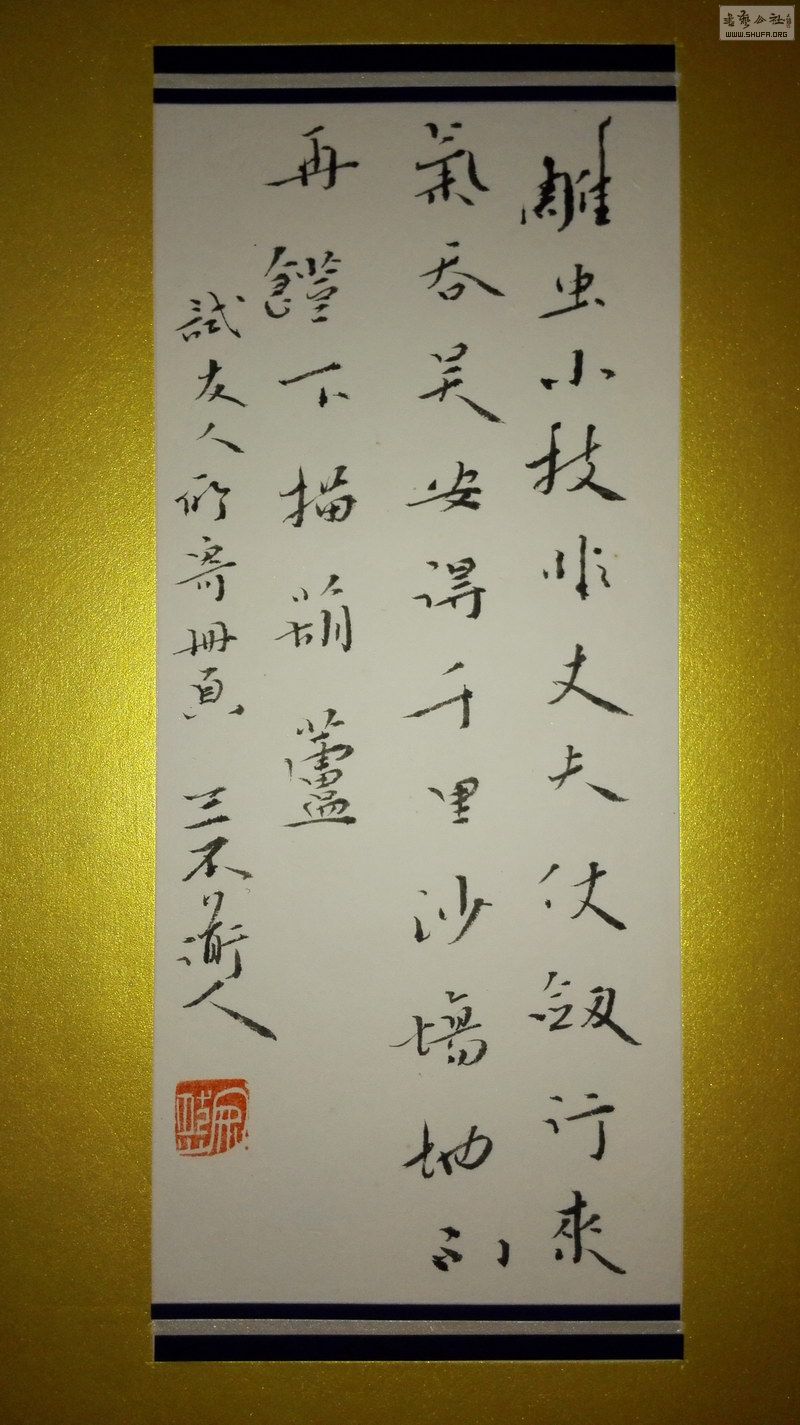 書藝公社
WWW.SHUFA.ORG
雕虫小技非丈夫仗劔行來
氣吞吴安得千里沙場地不
再鐙下描葫蘆
試友人所寄冊頁 三不齋人